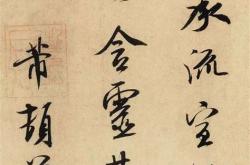 承流宣
含靈
芾頓